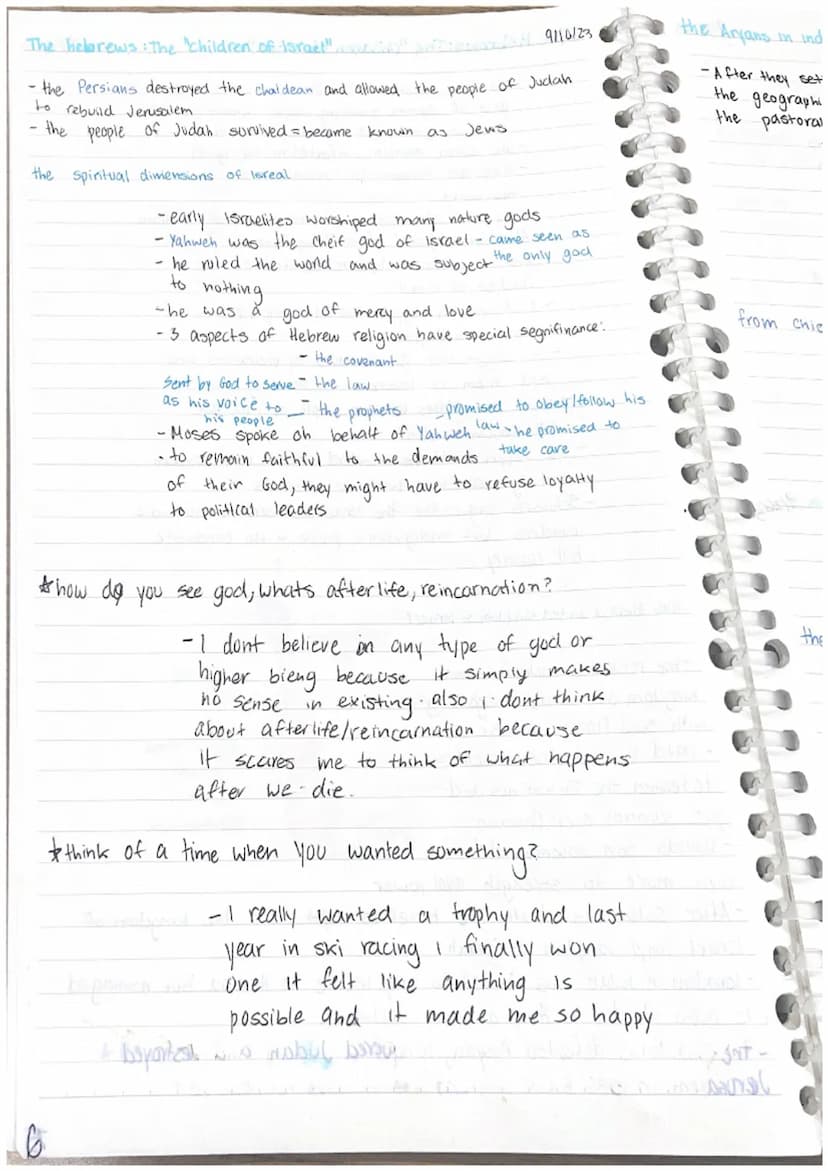 The hebrews: The "children of Israel"
9/10/23
- the Persians destroyed the chaldean and allowed the people of Judah
to rebuild Jerusalem
- the people of Judah survived = became known as Jews
the spiritual dimensions of Isreal
- early Israelites worshiped many nature gods
- Yahweh was the cheif god of Israel - came seen as
the only god
- he ruled the world and was subject
to nothing
- he was a god of mercy and love
- 3 aspects of Hebrew religion have special segnifinance:
- the covenant
sent by God to serve - the law
as his voice to - the prophets - promised to obey/follow his
his people
law - he promised to
- Moses spoke oh behalf of Yahweh
take care
- to remain faithful to the demands
of their God, they might have to refuse loyalty
to political leaders
☆how do you see god, whats afterlife, reincarnation?
- I dont believe in any type of god or
higher bieng because it simply makes
no sense in existing. also i dont think
about afterlife/reincarnation because
it scares me to think of what happens
after we die.
☆think of a time when you wanted something?
- I really wanted a trophy and last
year in ski racing i finally won
one it felt like anything is
possible and it made me so happy
6
the Aryans in ind
- After they set
the geographi
the pastora
from chie
the